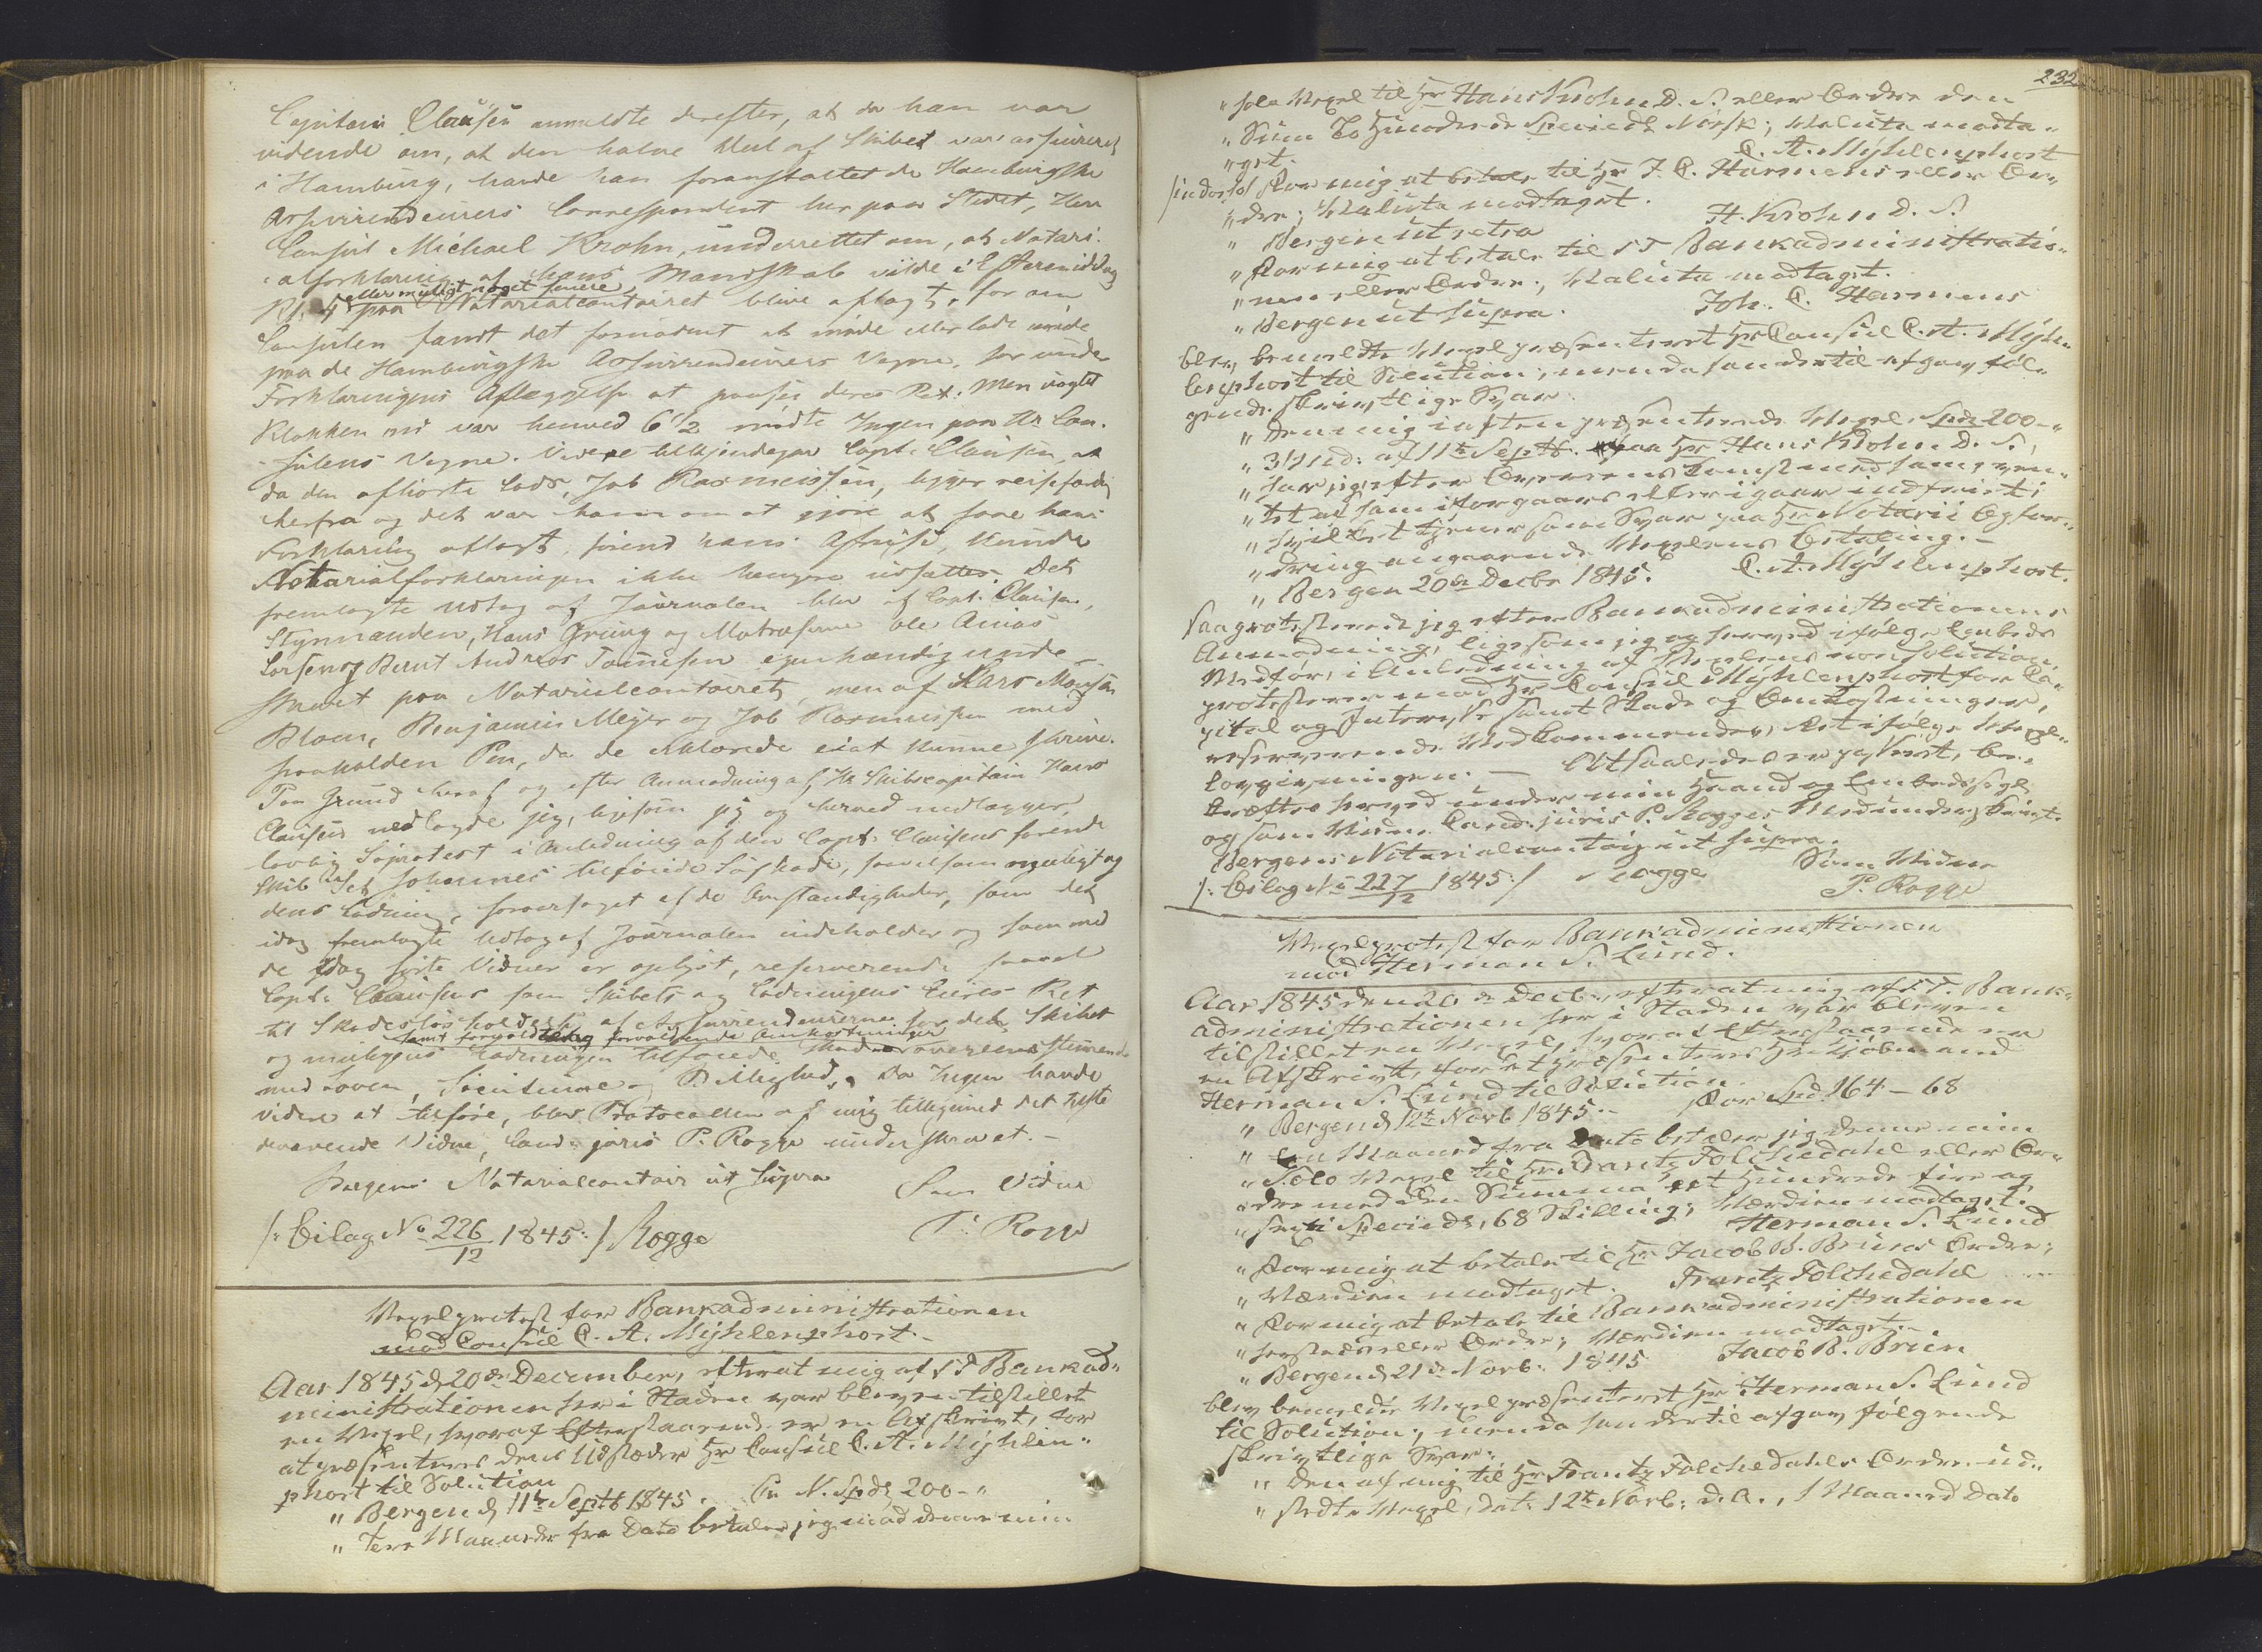 Capitain Clausen anmeldte derefter, at da han var
vidende om, at den halve Deel af Skibet var assureret
i Hamburg, havde han foranstaltet de Hamburgske
Assurrendeurers Correspondent her paa Stedet, Herr
Consul Michael Krohn, underrettet om, at Notari-
alforklaring af hans Mandskab vilde i Eftermiddag
Kl. 5 eller muligt noget senere, paa Notarialcontoiret blive aflagt, for om
Consulen fandt det fornødent at møde eller lade møde
paa de Hamburgske Assurrendeurers Vegne, for under
Forklaringens Aflæggelse at paase deres Ret: Men uagtet
Klokken nu var henved 6 1/2 mødte Ingen paa Hr Con-
sulens Vegne. Videre tilkjendegav Capt: Clausen, at
da den afhørte Lods, Job Rasmussen, ligger reisefærdig
herfra og det var ham om at gjøre at faae hans
Forklaring aflagt, førend hans Afreise, kunde
Notarialforklaringen ikke længere udsættes. Det
fremlagte Udtog af Journalen blev af Capt. Clausen,
Styrmanden, Hans Grung og Matroserne Ole Amias
Larsen og Bernt Andreas Tønnesen egenhændig under-
skrevet paa Notarialcontoiret, men af Lars Monsen
Bloen, Benjamin Meyer og Job Rasmussen med
paaholden Pen, da de erklærede ei at kunne skrive.
Paa Grund heraf og efter Anmodning af Hr Skibscapitain Hans
Clausen nedlagde jeg, ligesom jeg og herved nedlægger,
lovlig Søprotest i Anledning af den Capt. Clausens førende
Skib Set Johannes tilføiede Søskade, saavelsom muligt og
dens Ladning, foraarsaget af de Omstændigheder, som det
idag fremlagte Udtog af Journalen indeholder og som med
de idag førte Vidner er oplyst, reserverende saavel
Capt: Clausens som Skibets og Ladningens Eieres Ret
til Skadesløsholdelse af Assurrendeurerne for den, Skibet
samt forvoldte og forvoldende Omkostninger
og muligens Ladningen tilføiede Skade overeensstemmende
med Loven, Sædvane og Billighed. Da Ingen havde
videre at tilføre, blev Protocollen af mig tilligemed det tilste-
deværende Vidne, Cand: juris P. Rogge underskrevet. -
Bergens Notarialcontoir ut supra
Som Vidne
/: Bilag No 226/12 1845 :/ Rogge
P. Rogge
Vexelprotest for Bankadministrationen
mod Consul C. A. Myhlenphort.-
Aar 1845 d. 20de December, efterat mig af S T Bankad-
ministrationen her i Staden var bleven tilstillet
en Vexel, hvoraf Efterstaaende er en Afskrivt, for
at præsenteres dens Udstæder Hr Consul C. A. Myhlen-
phort til Solution
" Bergen d. 11te Septb 1845. Pr N. Spd. 200-"
" Tere Maaneder fra Dato betaler jeg mod denne min
232
" sola Vexel til Hr Hans Krohn D. S. eller Ordre den
" Sum To Hundrede Speciedl Norsk; Valuta modta-
" get.
C. A. Myhlenphort
" For mig at betale til Hr J. C. Harmens eller Or-
" dre; Valuta modtaget.
" Bergen ut retro
H. Krohn D. S.
" For mig at betale til S T Bankadministratio-
" nen eller Ordre; Valuta modtaget.
" Bergen ut supra.
Joh. C. Harmens
blev bemeldte Vexel præsenteret Hr Consul C. A. Myh-
lenphort til Solution; men da han dertil afgav føl-
gende skrivtlige Svar:
" Den mig i aften præsenterede Vexel Spd. 200-"
" 3 Md: af 11te Septb. paa Hr Hans Krohn D. S.,
" har jeg efter Overeenskomst med samme ven-
" tet at ham i forgaars eller igaar indfriet;
" hvilket tjener som Svar paa Hr Notarii Opfor-
" dring angaaende Vexelens Betaling.-
" Bergen 20de Decbr 1845.
C. A. Myhlenphort.
saa protesterede jeg efter Bankadministrationens
Anmodning, ligesom jeg og herved ifølge Embeds
Medfør, i Anledning af Vexelens nonsolution,
protesterer mod Hr Consul Myhlenphort for Ca-
pital og Interesse samt Skade og Omkostninger,
reserverende Vedkommendes Ret ifølge Vexel-
lovgivningen. - Altsaaledes er passeret, be-
kræftes herved under min Haand og Embedssegl,
og som Vidne Cand: juris P. Rogges Medunderskrivt.
Bergens Notarialcontoir ut supra.
Som Vidne
/: Bilag No 227/12 1845 :/ Rogge
P. Rogge
Vexelprotest for Bankadministionen
mod Herman S. Lund.
Aar 1845 den 20de Decbr, efterat mig af S T. Bank-
administrationen her i Staden var bleven
tilstillet en Vexel, hvoraf Efterstaaende er
en Afskrivt, for at præsenteres Hr Kjøbmand
Herman S. Lund til Solution.
" Bergen d. 12te Novb 1845.- For Spd. 164 - 68
" En Maaned fra Dato betaler jeg denne min
" Solo Vexel til Hr Frantz Folchedahl eller Or-
" dre med den Summa et Hundrede fire og
" sexti Speciedl, 68 Skilling; Værdien modtaget.
Herman S. Lund
" For mig at betale til Hr Jacob B. Bruns Ordre;
" Værdien modtaget. Frantz Folchedahl
" For mig at betale til Bankadministrationen
" hersteds eller Ordre; Værdien modtaget.-
" Bergen d. 21de Novb: 1845 Jacob B. Brun
blev bemeldte Vexel præsenteret Hr Herman S. Lund
til Solution; men da han dertil afgav følgende
skrivtlige Svar:
" Den af mig til Hr Frantz Folchedahls Ordre ud-
" stedte Vexel, dat: 12te Novb: d. A., 1 Maaned Dato